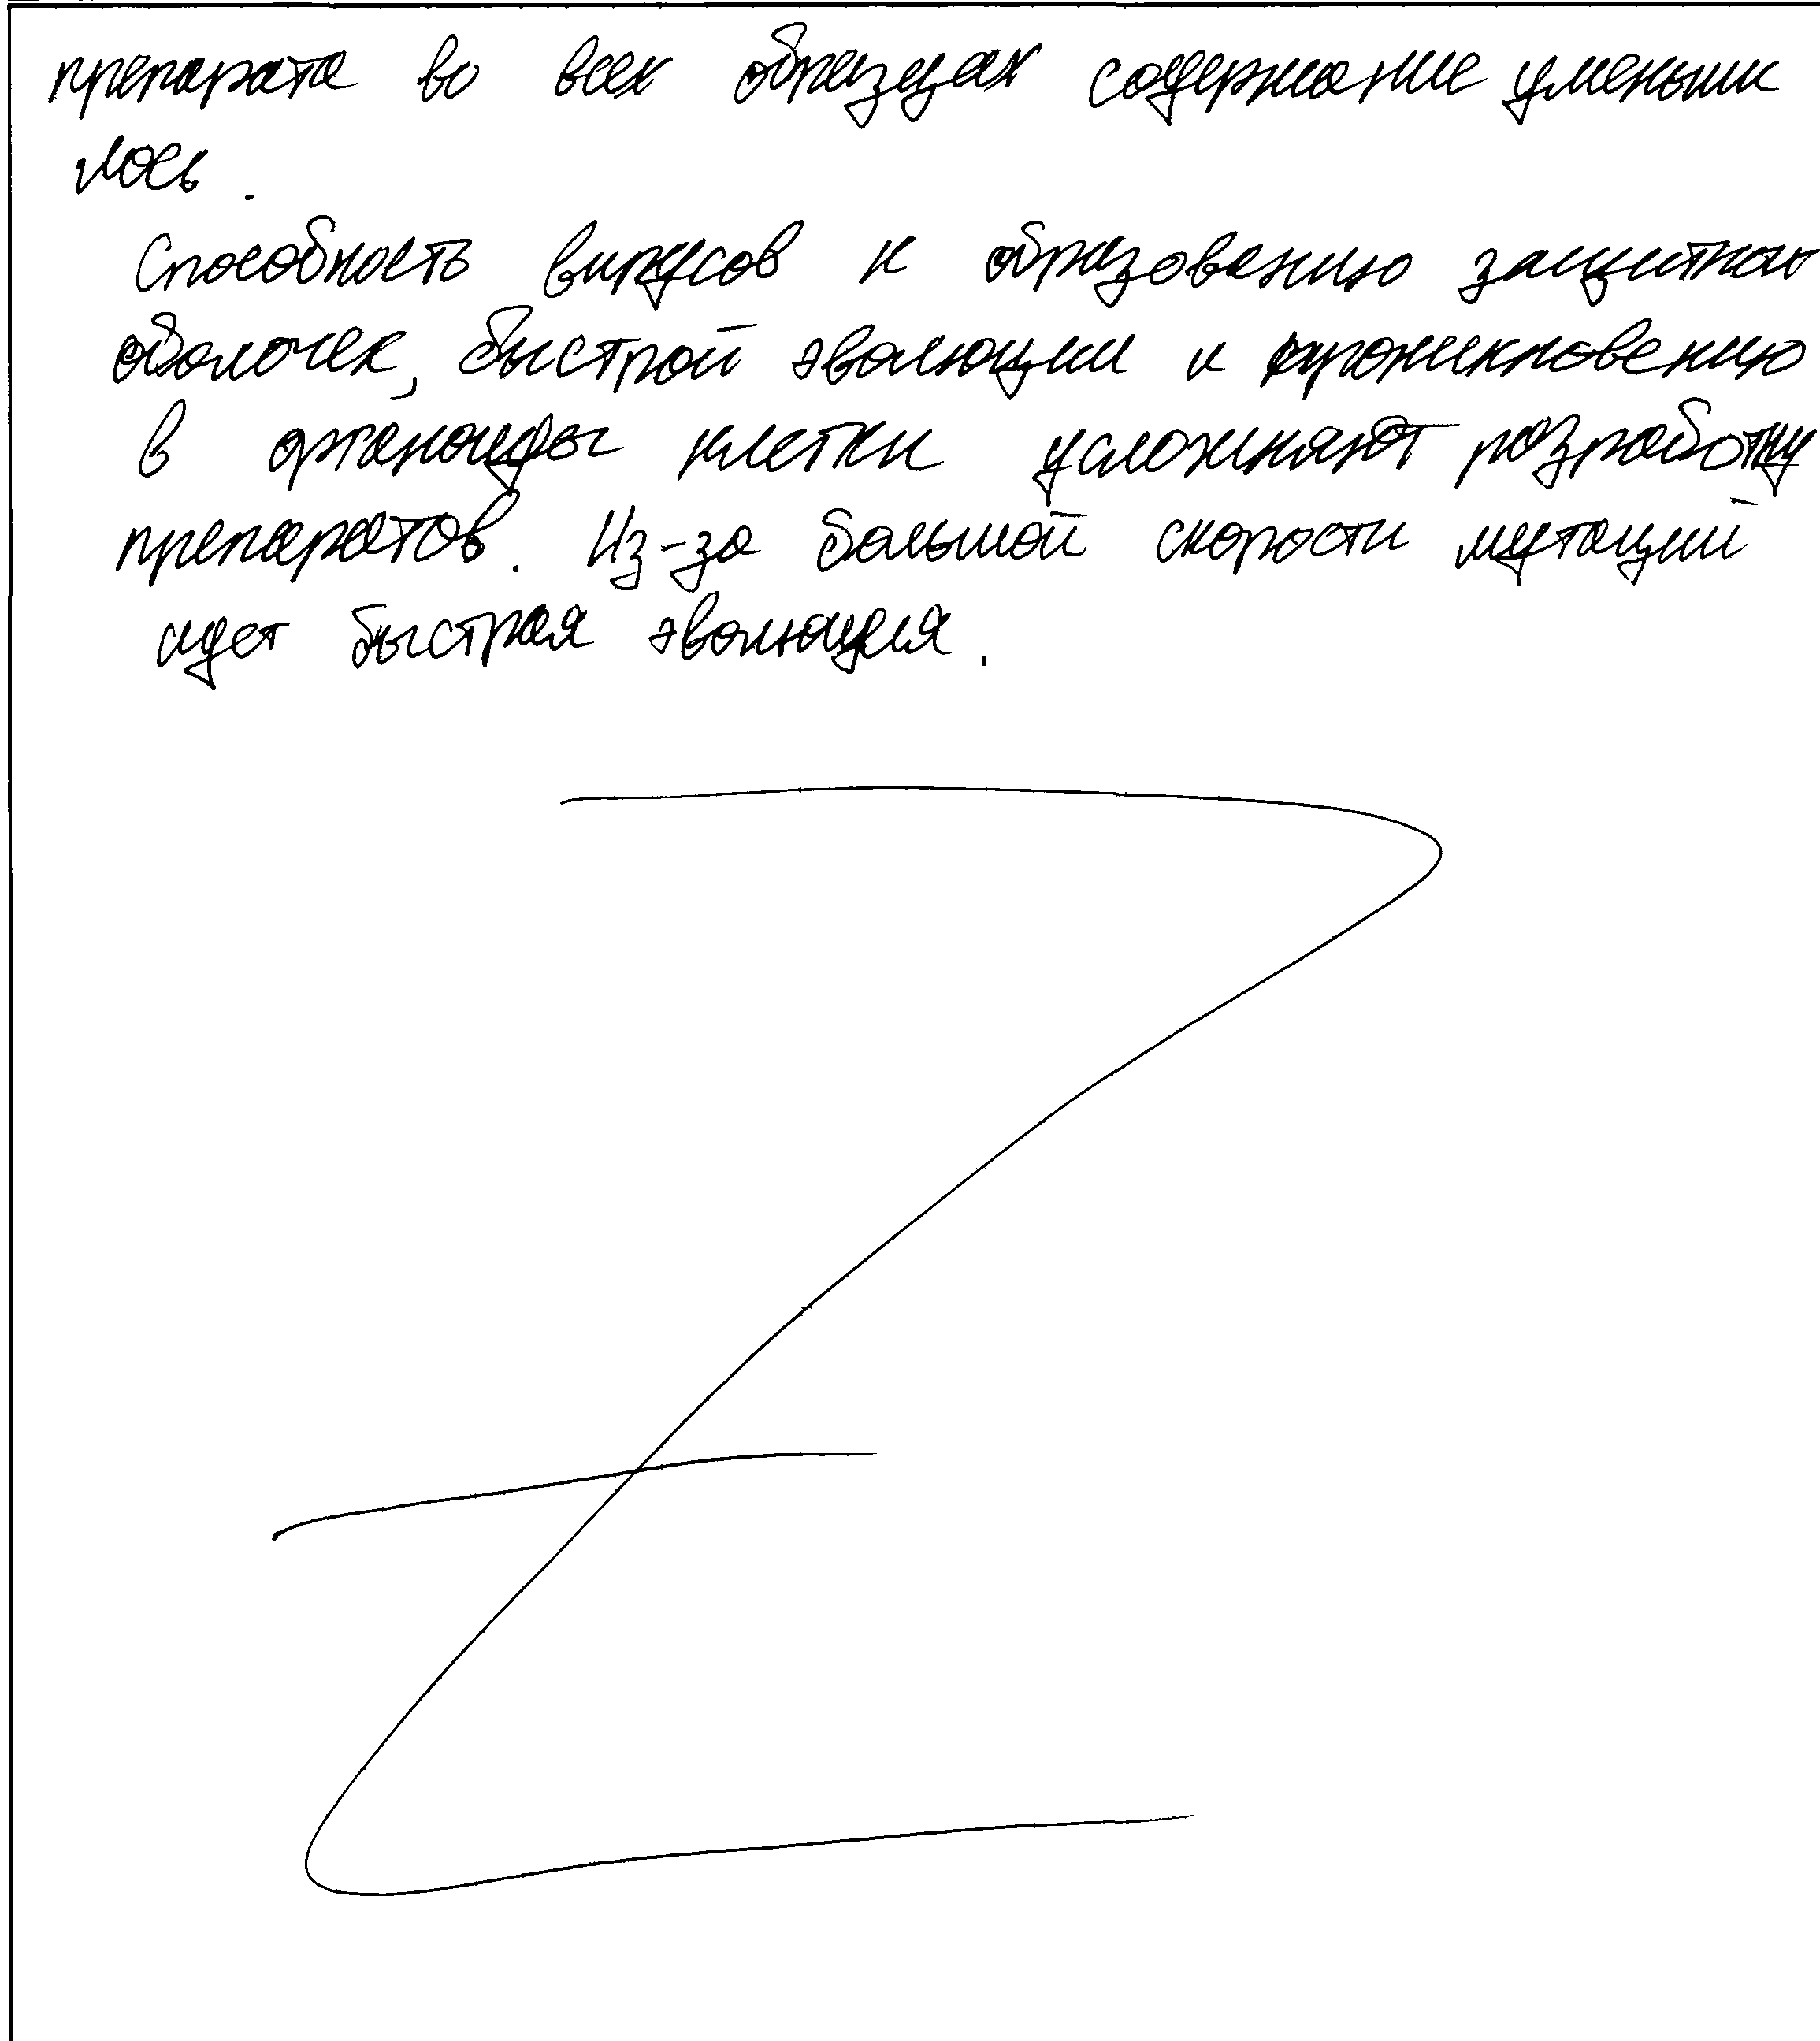 препарата во всех образцах содержание уменьши
лось.
Способность вирусов к образованию защитных
оболочек, быстрой эволюции и проникновению
в органоиды клетки усложняют разработку
препаратов. Из-за большой скорости мутаций
идет быстрая эволюция.
Z